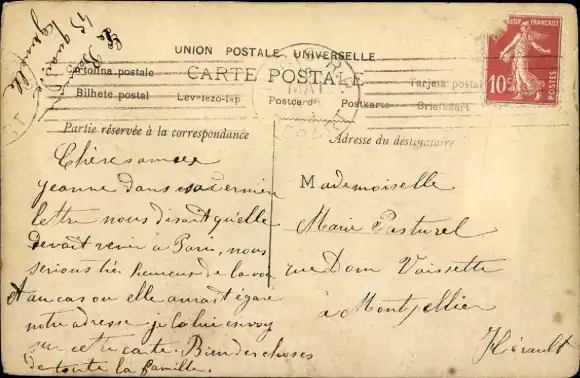 UNION POSTALE UNIVERSELLE
CARTE POSTALE
Cartolina postale
Bilhete postal
Levelezo-lap
Postcard
Postkarte
Tarjeta postal
Briefkaart
RÉPUBLIQUE FRANÇAISE
10c
POSTES
Partie réservée à la correspondance
Adresse du destinataire
45 quai de
Chères amies
jeanne dans sa dernière
lettre nous disait qu'elle
devait venir à Paris, nous
serions très heureux de la voir
et au cas ou elle aurait égaré
notre adresse je la lui envoy
sur cette carte. Bien des choses
de toute la famille.
Mademoiselle
Marie Pasturel
rue Dom Vaissette
à Montpellier
Hérault